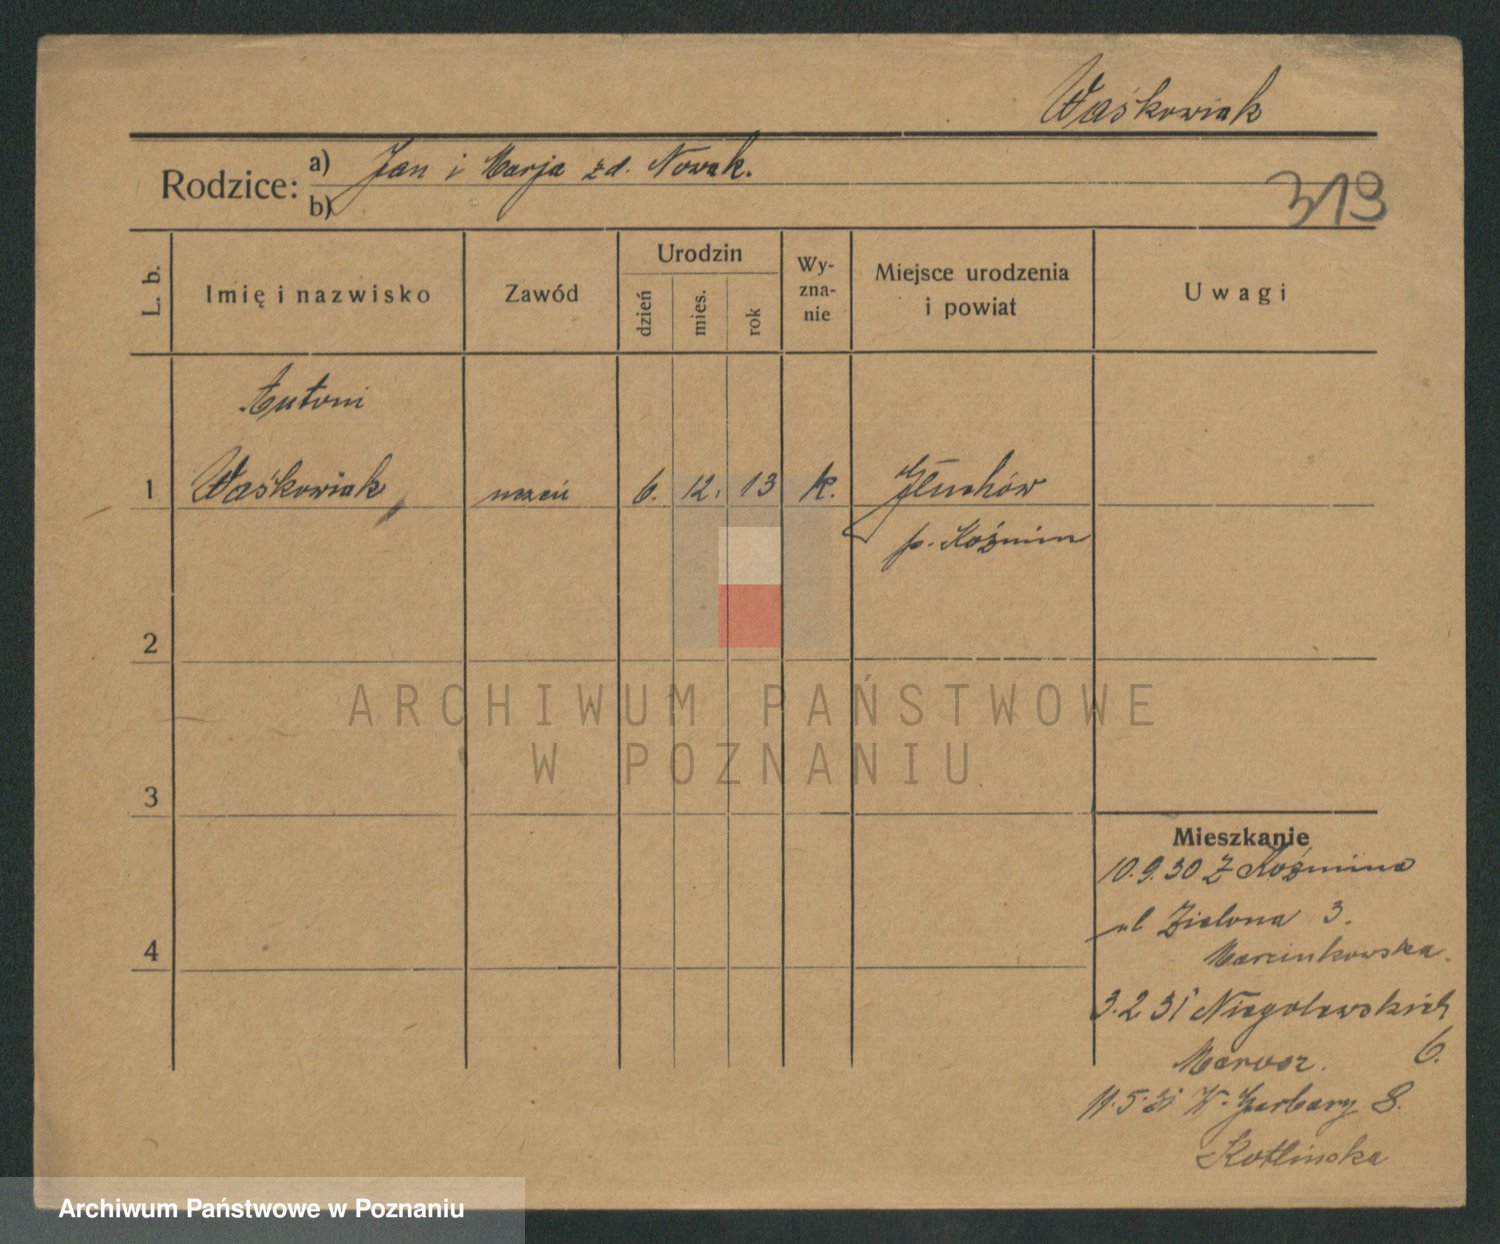 Waśkowiak
Rodzice: a) Jan i Marja zd. Nowak.
b)
319
L. b.
Imię i nazwisko
Zawód
Urodzin
dzień
mies.
rok
Wy-
zna-
nie
Miejsce urodzenia
i powiat
Uwagi
Antoni
1 Waśkowiak uczeń 6. 12. 13 k. Głuchów
p. Koźmin
2
3
4
ARCHIWUM PAŃSTWOWE
W POZNANIU
Mieszkanie
10.9.30 z Koźmina
ul Zielona 3.
Marcinkowska.
3.2 31 Niegolewskich
6.
11.5.31 W. Garbary 8.
Kotlinska
Archiwum Państwowe w Poznaniu